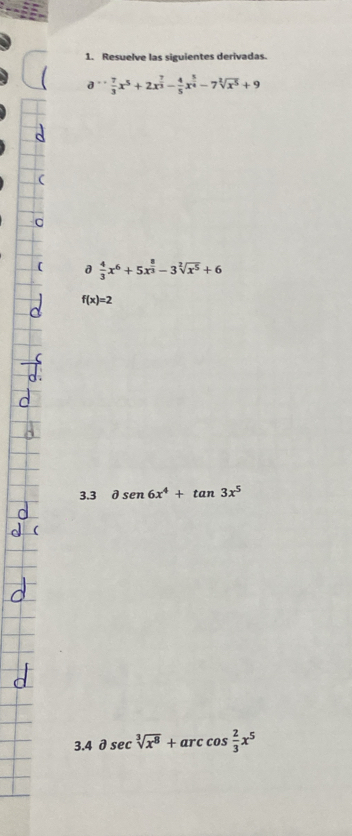 1. Resuelve las siguientes derivadas.
∂ -- 7/3 x⁵ + 2x^(7/3) − 4/5 x^(5/4) − 7∛x⁵ + 9
∂ 4/3 x⁶ + 5x^(8/3) − 3²√x⁵ + 6
f(x)=2
3.3 ∂ sen 6x⁴ + tan 3x⁵
3.4 ∂ sec ³√x⁸ + arc cos 2/3 x⁵